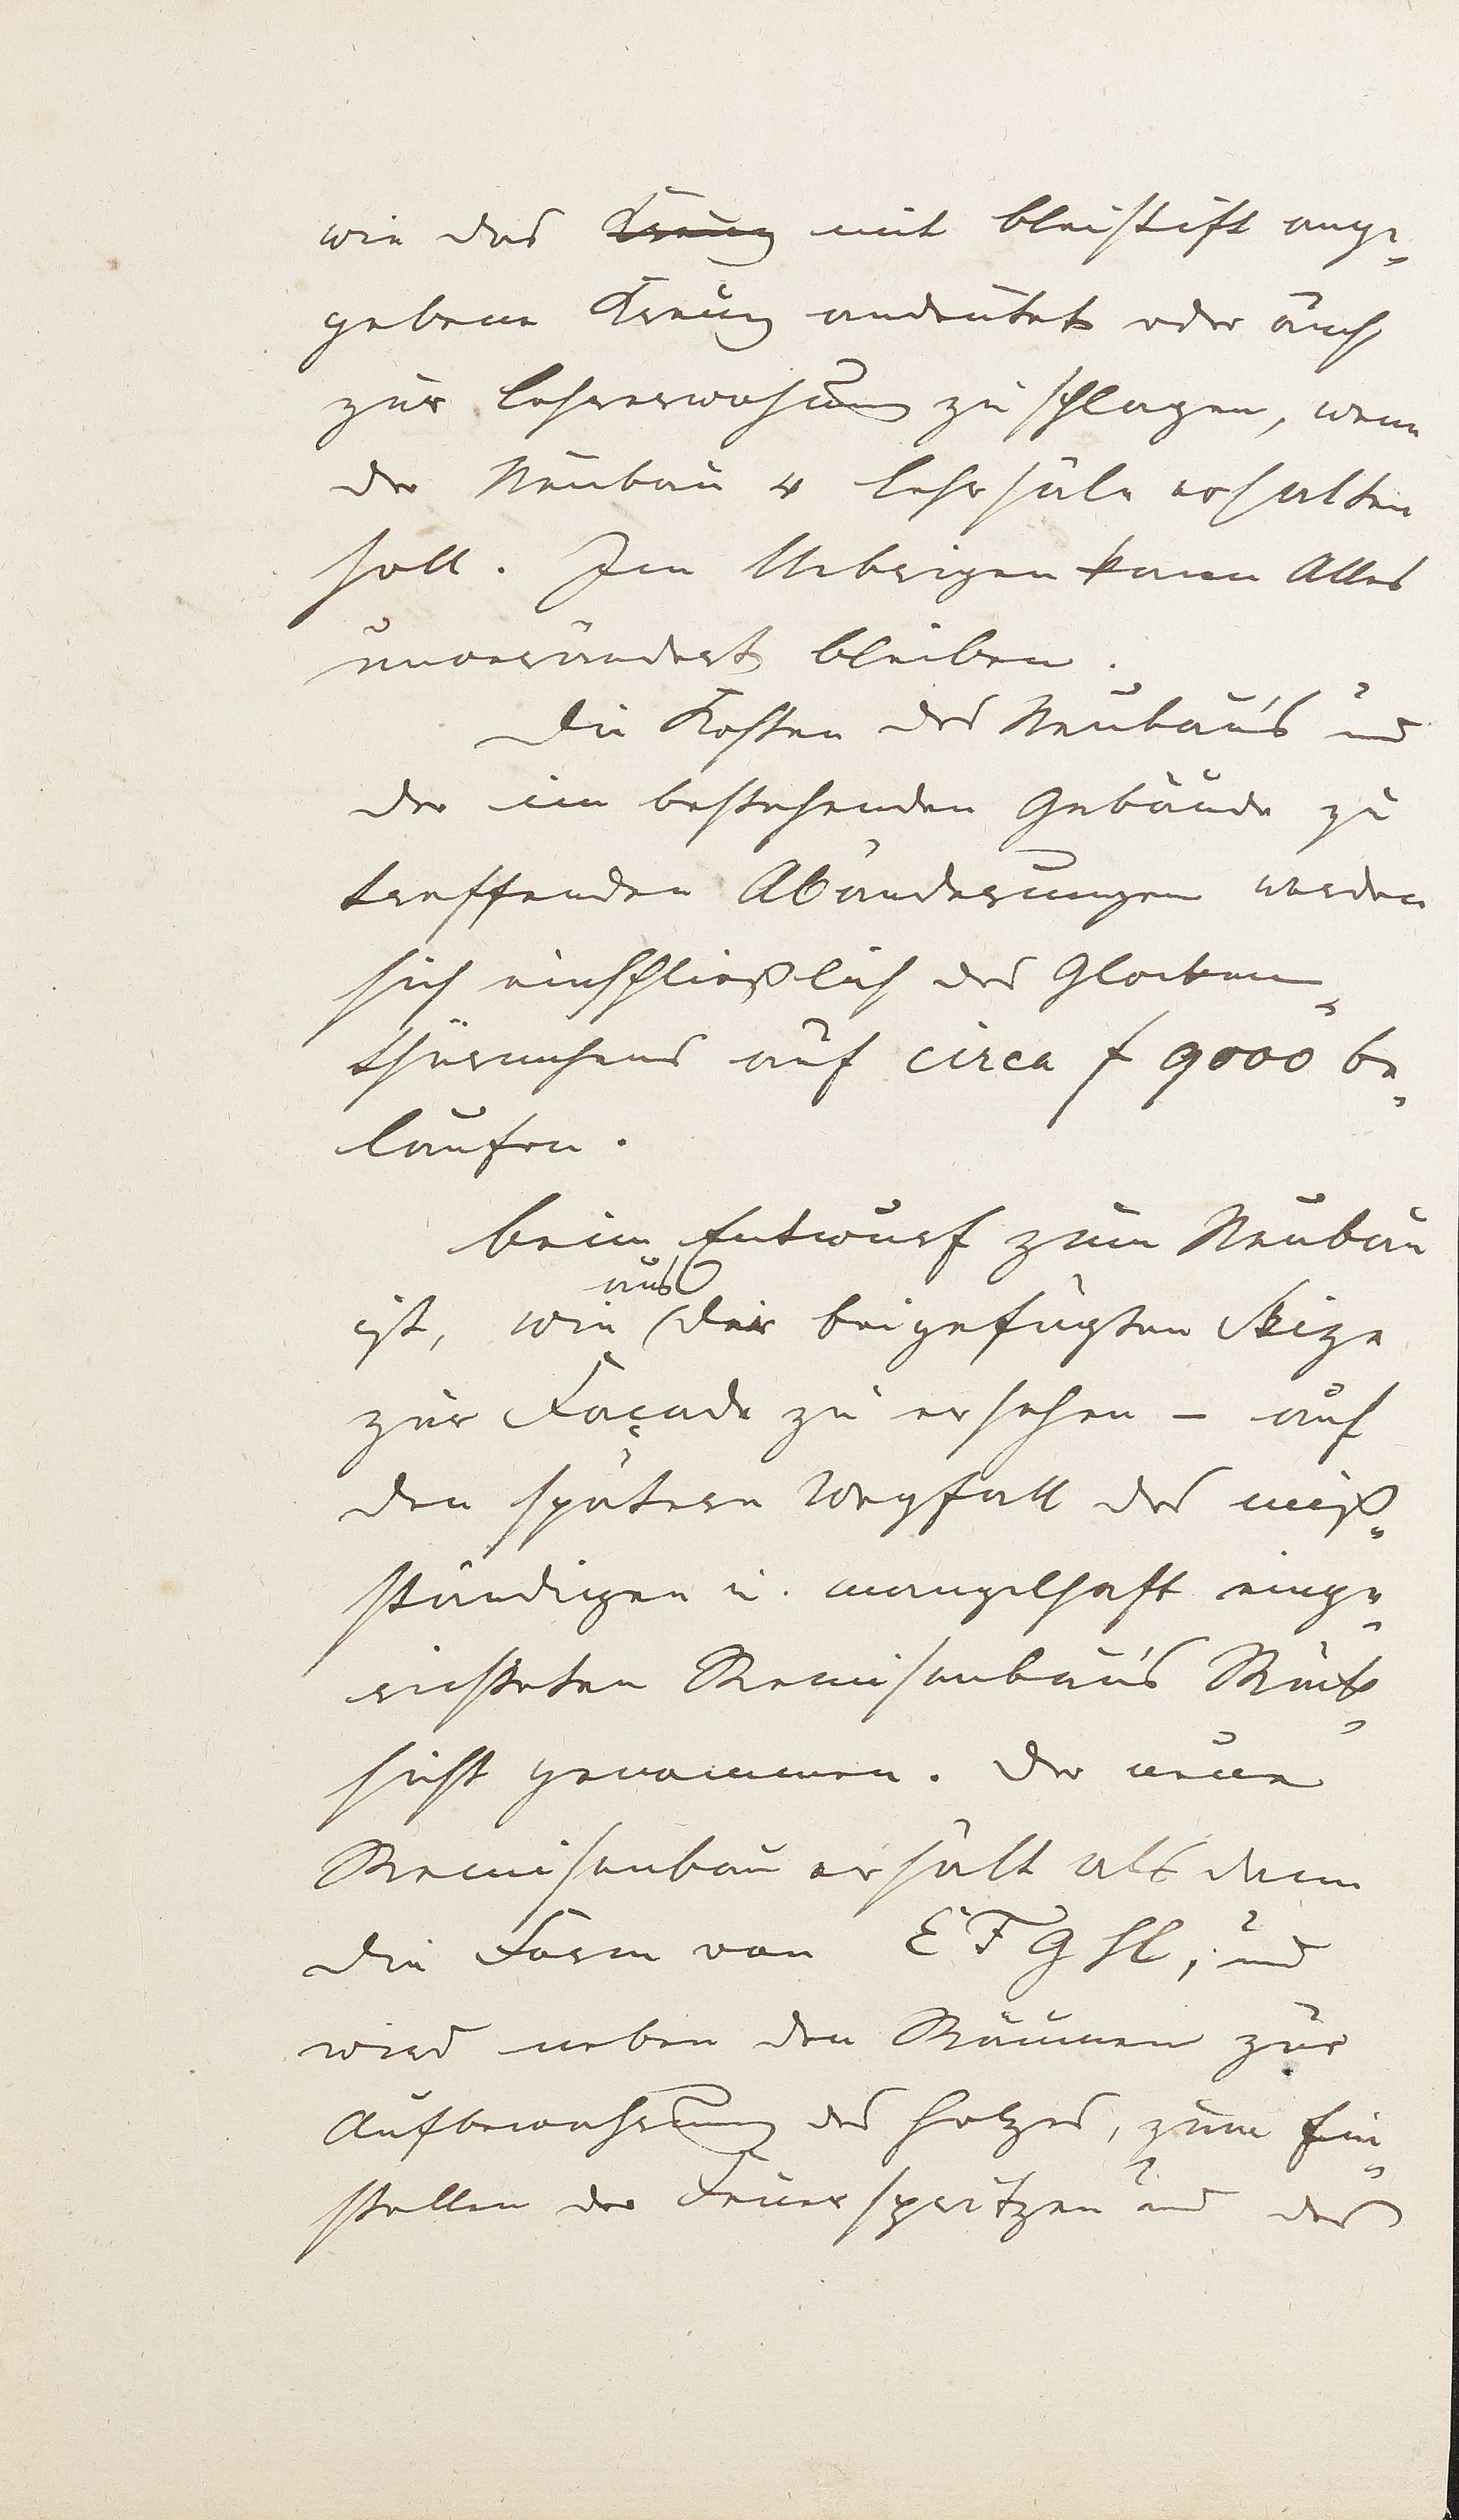 wie das Kreuz mit Bleistift ange-
gebene Kreuz andeutet oder auch
zur Lehrerwohnung zu schlagen, wenn
der Neubau 4 Lehrsäle erhalten
soll. Im Uebrigen kann Alles
unverändert bleiben.
Die Kosten des Neubau's und
der im bestehenden Gebäude zu
treffenden Abänderungen werden
sich einschließlich des Glocken-
thürmchens auf circa f 9000 be-
laufen.
Beim Entwurf zum Neubau
aus
ist, wie der beigefügten Skize
zur Façade zu ersehen – auf
den spätern Wegfall des miß-
ständigen u. mangelhaft einge-
richteten Remisenbau's Rück-
sicht genommen. Der neue
Remisenbau erhält als dann
die Form von E F G H, und
wird neben den Räumen zur
Aufbewahrung des Holzes, zum Ein-
stellen der Feuerspritzen und des